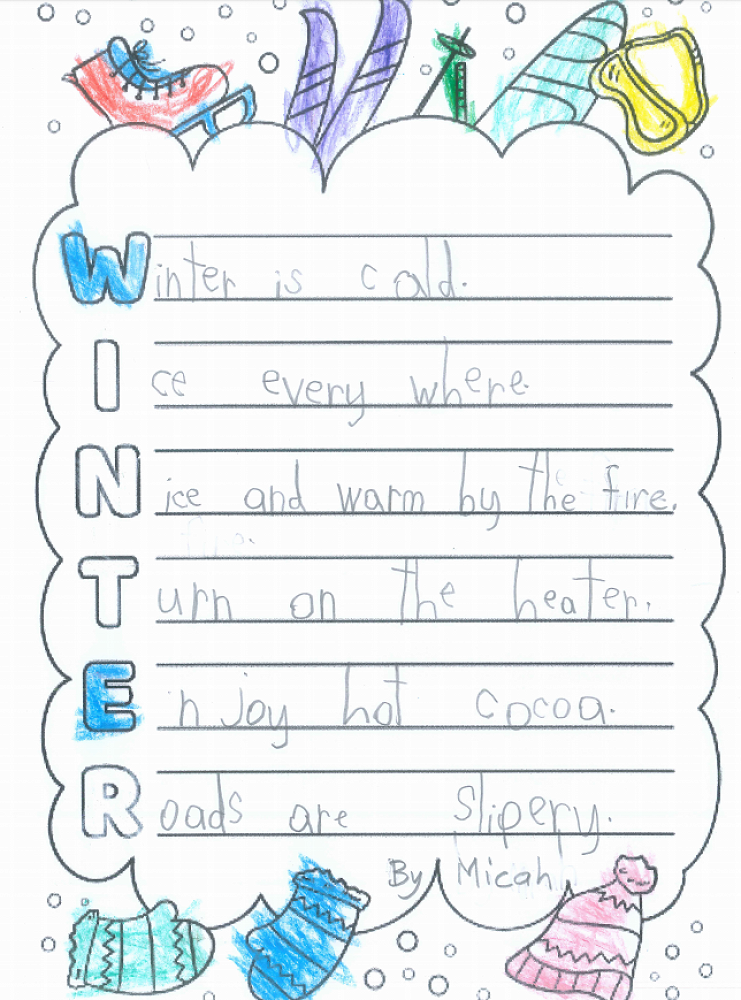 Winter is cold.
Ice every where.
Nice and warm by the fire.
Turn on the heater.
Enjoy hot cocoa.
Roads are slipery.
By Micah